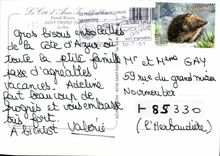 La Côte d'Azur
French Riviera
SAINT-TROPEZ
Gros bisous ensoleillés
de la Côte d'Azur où
toute la petite famille
passe d'agréables
vacances. Adeline
fait beaucoup de
progrès et vous embrasse
très fort.
A bientôt Valérie
Mr et Mme GAY
59 rue du grand
Noirmoutier
85330
(L'Herbaudière)